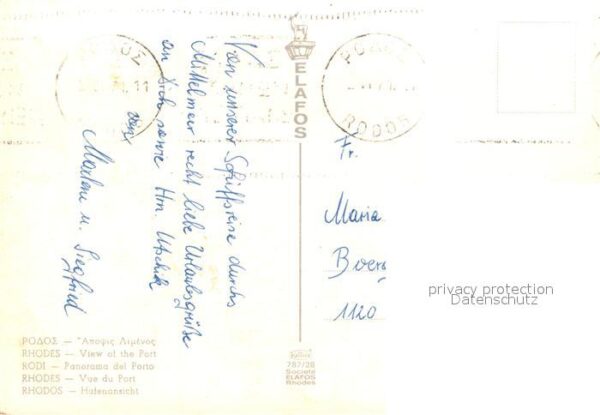 Von unserer Schiffsreise durchs
Mittelmeer recht liebe Urlaubsgrüße
an Dich sowie Hrn.
Marlene u. Siegfried
ΡΟΔΟΣ
11
ELAFOS
ΡΟΔΟΣ
RODOS
Fr.
Maria
1120
privacy protection
Datenschutz
ΡΟΔΟΣ — Ἄποψις Λιμένος
RHODES — View of the Port
RODI — Panorama del Porto
RHODES — Vue du Port
RHODOS — Hafenansicht
787/28
Societe
ELAFOS
Rhodes